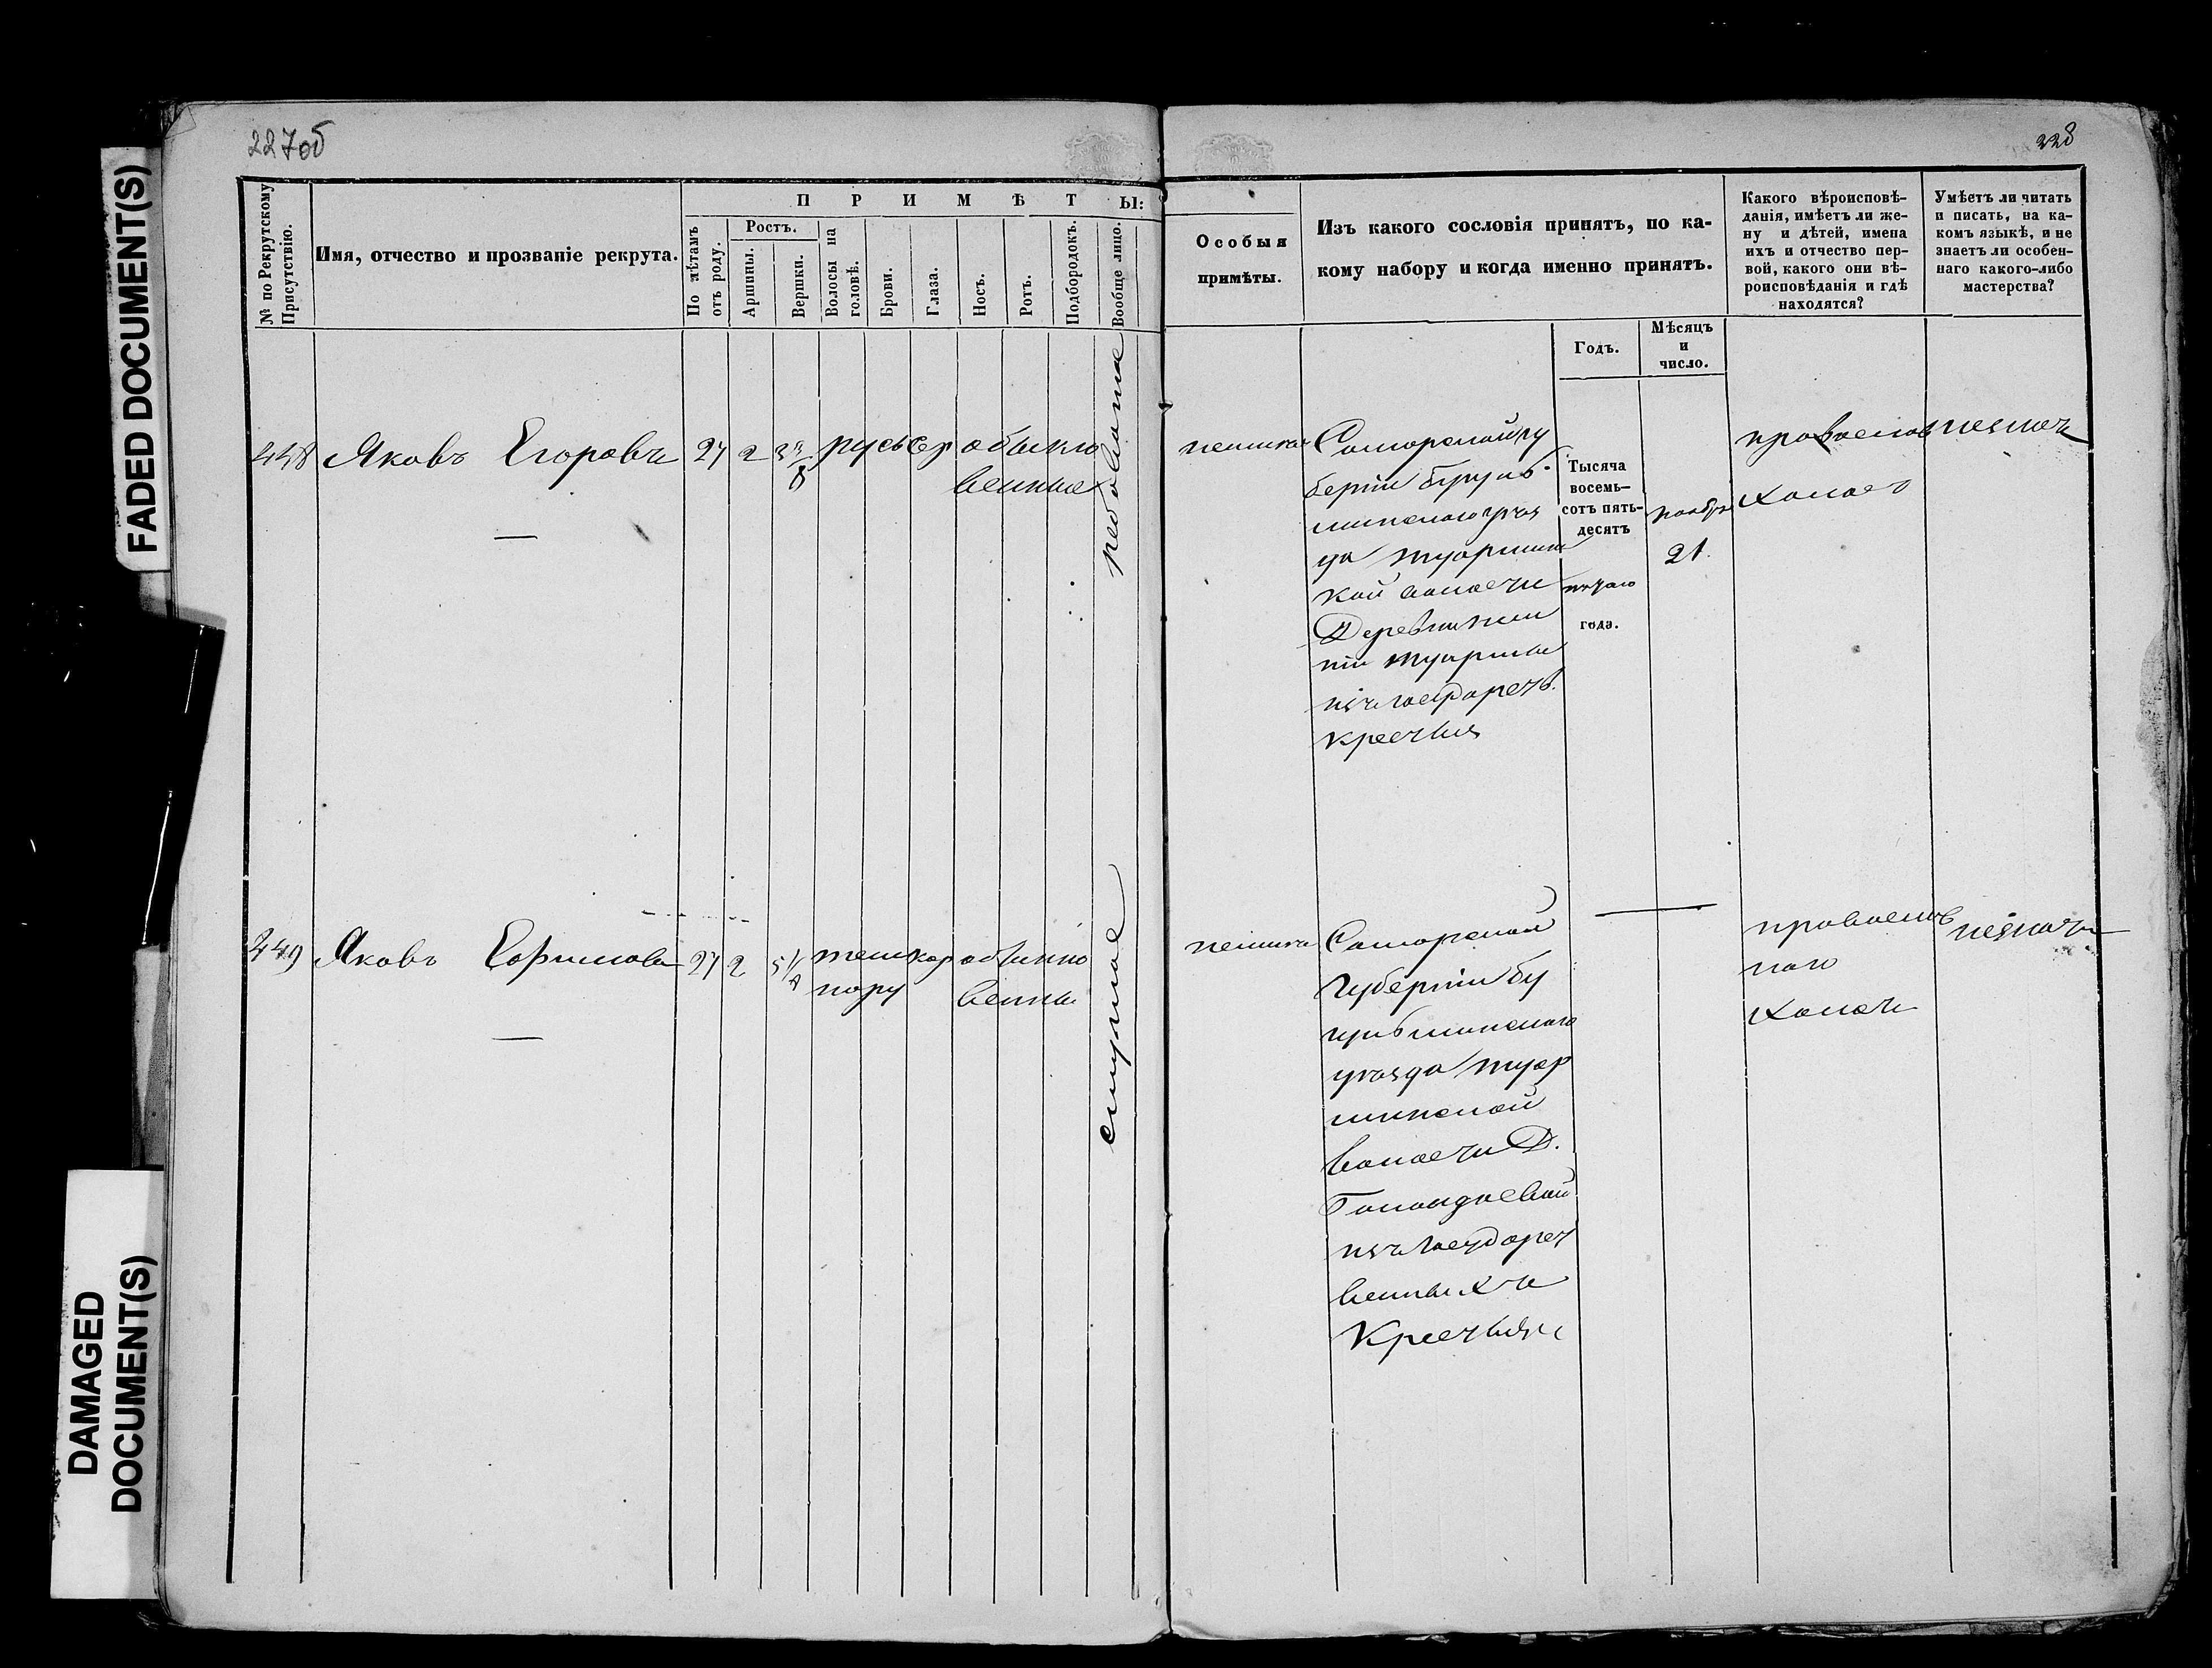 FADED DOCUMENT(S)
DAMAGED
DOCUMENT(S)
227об
228
№ по Рекрутскому
Присутствію.
Имя, отчество и прозваніе рекрута.
П Р И М Ѣ Т Ы:
По лѣтамъ
отъ роду.
Ростъ.
Аршины.
Вершки.
Волосы на
головѣ.
Брови.
Глаза.
Носъ.
Ротъ.
Подбородокъ.
Вообще лицо.
Особыя
примѣты.
Изъ какого сословія принятъ, по ка-
кому набору и когда именно принятъ.
Годъ.
Мѣсяцъ
и
число.
Какого вѣроисповѣ-
данія, имѣетъ ли же-
ну и дѣтей, имена
ихъ и отчество пер-
вой, какого они вѣ-
роисповѣданія и гдѣ
находятся?
Умѣетъ ли читать
и писать, на ка-
комъ языкѣ, и не
знаетъ ли особен-
наго какого-либо
мастерства?
448 Яковъ Егоровъ 27 2 3 русы сер обыкно
венные
Самарской гу
берніи бугуль
минского уез
да туармин
кой волости
Деревни
туармы
изъ
крестья
Тысяча
восемь-
сотъ пять-
десятъ
пятаго
года.
ноября
21.
православ
холостъ
незнаетъ
449 Яковъ Ефимовъ 27 2 5 1/4 темно кар обыкно
венны
смуглое
Самарской
Губерніи бу
гульминского
уезда туар
минской
волости Д.
изъ государст
венныхъ
Крестьянъ
православ
наго
холостъ
незнаетъ